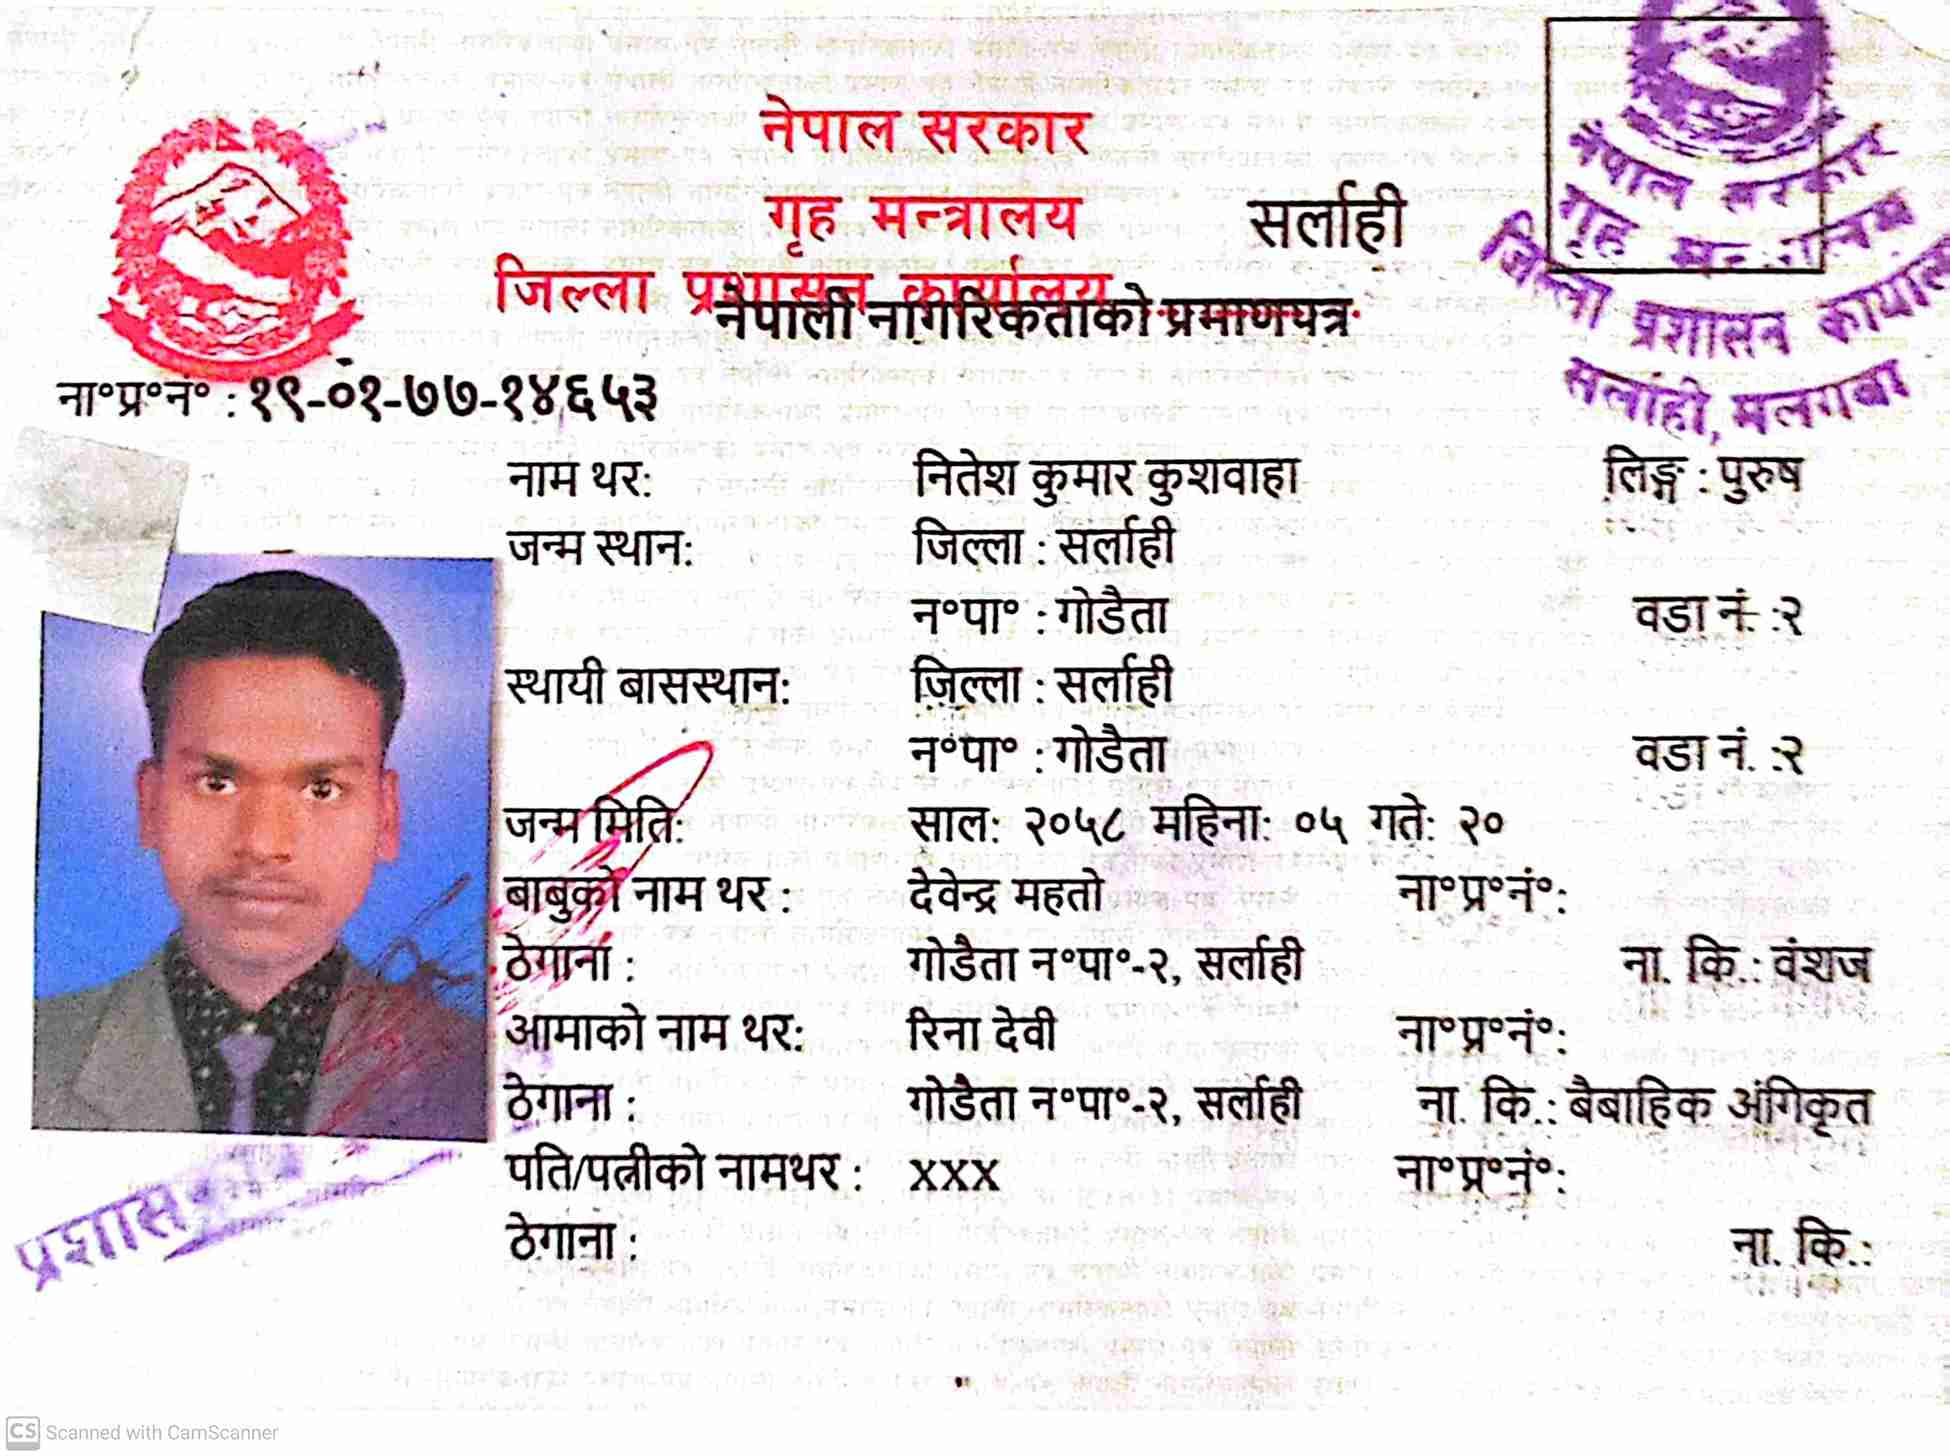 नेपाल सरकार
गृह मन्त्रालय
सर्लाही
जिल्ला प्रशासन कार्यालय
नेपाली नागरिकताको प्रमाणपत्र
नेपाल सरकार
गृह मन्त्रालय
जिल्ला प्रशासन कार्याल
सर्लाही, मलंगवा
ना°प्र°नं° : १९-०१-७७-१४६५३
नाम थर: नितेश कुमार कुशवाहा लिङ्ग : पुरुष
जन्म स्थान: जिल्ला : सर्लाही
न°पा° : गोडैता वडा नं. :२
स्थायी बासस्थान: जिल्ला : सर्लाही
न°पा° : गोडैता वडा नं. :२
जन्म मिति: साल: २०५८ महिना: ०५ गते: २०
बाबुको नाम थर : देवेन्द्र महतो ना°प्र°नं°:
ठेगाना : गोडैता न°पा°-२, सर्लाही ना. कि.: वंशज
आमाको नाम थर: रिना देवी ना°प्र°नं°:
ठेगाना : गोडैता न°पा°-२, सर्लाही ना. कि.: बैबाहिक अंगिकृत
पति/पत्नीको नामथर : XXX ना°प्र°नं°:
ठेगाना : ना. कि.:
प्रशास
CS Scanned with CamScanner